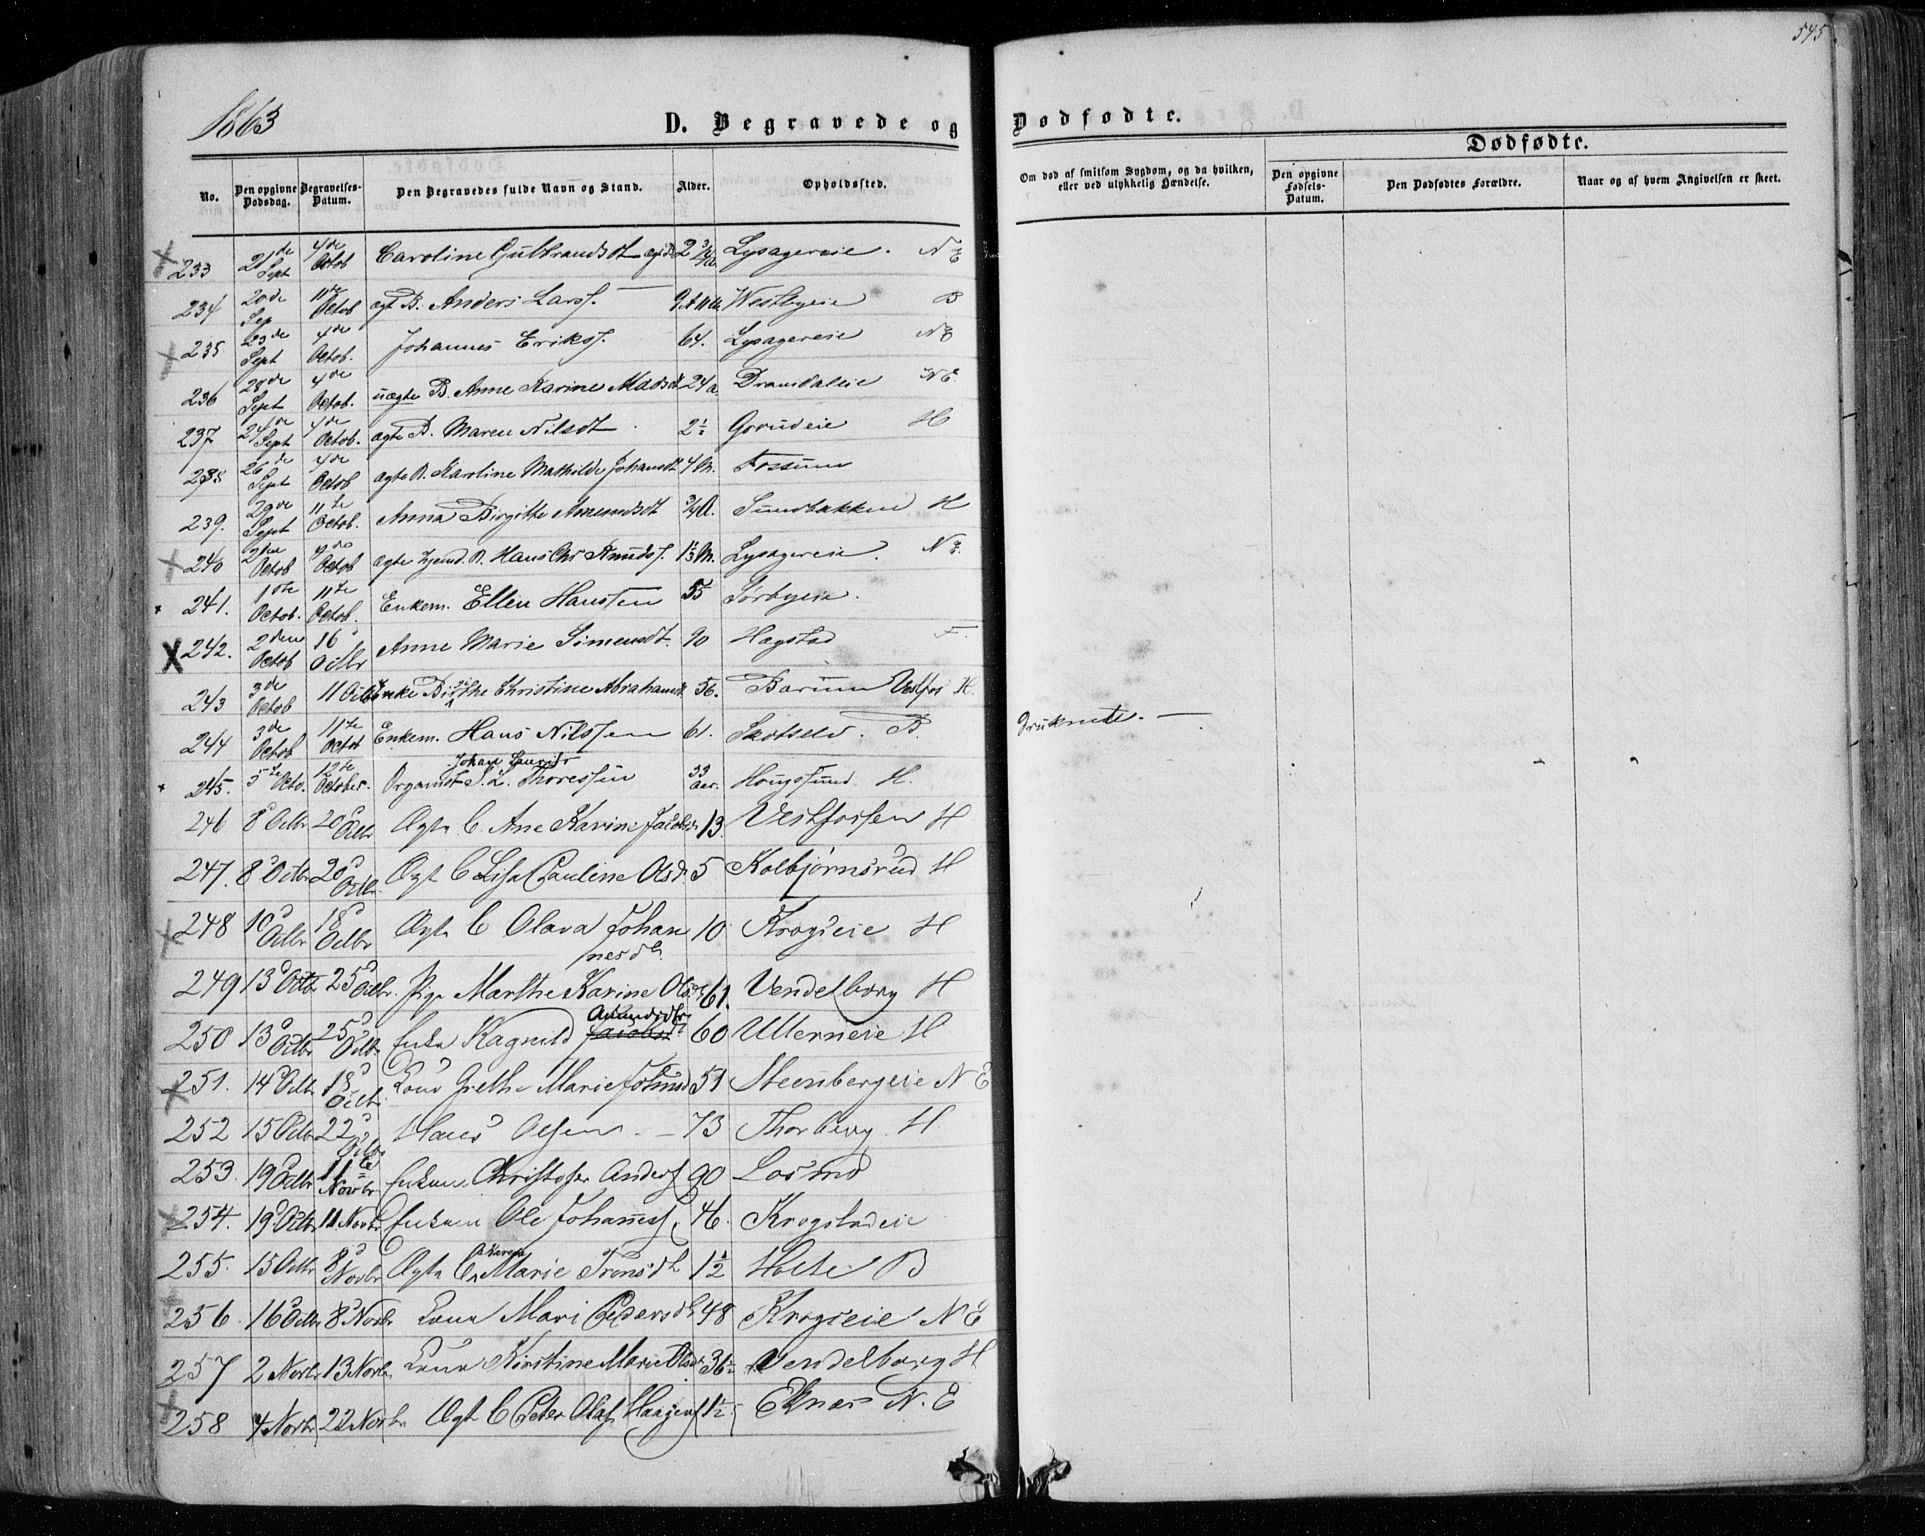 545
1863
D. Begravede og Dødfødte.
Dødfødte.
No.
Den opgivne Dødsdag.
Begravelses-Datum.
Den Begravedes fulde Navn og Stand.
Alder.
Opholdssted.
Om død af smitsom Sygdom, og da hvilken, eller ved ulykkelig Hændelse.
Den opgivne Fødsels-Datum.
Den Dødfødtes Forældre.
Naar og af hvem Angivelsen er skeet.
233 21de Sept 4de Octob Caroline Gulbrandsdt 2 Lysagereie. NE
234 20de Sep 11te Octob ægt B. Anders Larss. Westbyeie B
235 23de Sept 4de Octob. Johannes Eriks. 64. Lysagereie NE
236 28de Sept 4de Octob. uægte B. Anne Karine Madsdt 24 Dramdaleie NE.
237 24de Sept 4de Octob. ægte B. Maren Nilsdt 2½ Gorudeie H
238 26de Sept 4de Octob ægte B. Karoline Mathilde Johansdt 4 M. Fossum
239. 29de Sept 11te Octob. Anna Birgithe Amundsdt ¾ A. Sundbakken H
240 2den Octob Octob ægte B. Hans Chr Knuds. Lysagereie. NE.
241. 1ste Octob. 11te Octob. Enkem. Ellen Hanssen 55 Sørbyeie.
242. 2den Octob 16 Octbr Anne Marie Simensdt. 90 Hagstad F.
243 3de Octob 11 Octb Enke Birthe Christine Abrahamsdt 56. Barum Vestfos H.
244 3de Octob 11te Octob Enkem. Hans Nilssen 61. Skotselv. B Druknede. —
Johan Laurits
245. 5te Octo. 12te October. Organist J. L. Thoressen 33 Aar. Hougsund H.
246 8 Octbr 20 Octbr Ægte B. Ane Karine Jacobsd 13 Vestfossen H
247. 8 Octbr 20 Octbr. Ægt B. Lisa Pauline Olsd. 5 Kolbjørnsrud H
248 10 Octbr 18 Octbr Ægte B. Olava Johan 10 Krogseie H
nesdt.
249 13 Octbr 25 Octbr. Pige Marthe Karine Olsdt 61. Vendelborg H
Amundsdtr
250 13 Octbr 25 Octbr Enke Ragnild Jacobsdt 60 Ullerneie H
251. 14 Octbr 18 Octbr. Kone Grethe Marie 51 Steenbergeie NE
252 15 Octbr 22 Octbr Hans Olsen — 73 Thorberg. H.
253. 19 Octbr 11te Novbr Enkem Christofer Anders 90 Losmo
254. 19 Octbr 11 Novbr Enkem Ole Johannes 46. Krogstadeie
255. 15 Octbr 8 Novbr Ægte B. Marie Tronsdt 1½ Holte B
256. 16 Octbr 8 Novbr Kone Mari Pedersdt 48 Krogseie NE
257 2 Novbr 13 Novbr Kone Kirstine Marie Olsdt 36½ Vendelborg H
258 4 Novbr 22 Novbr Ægt B. Peter Olaf Haagens 1½ Eknæs N.E